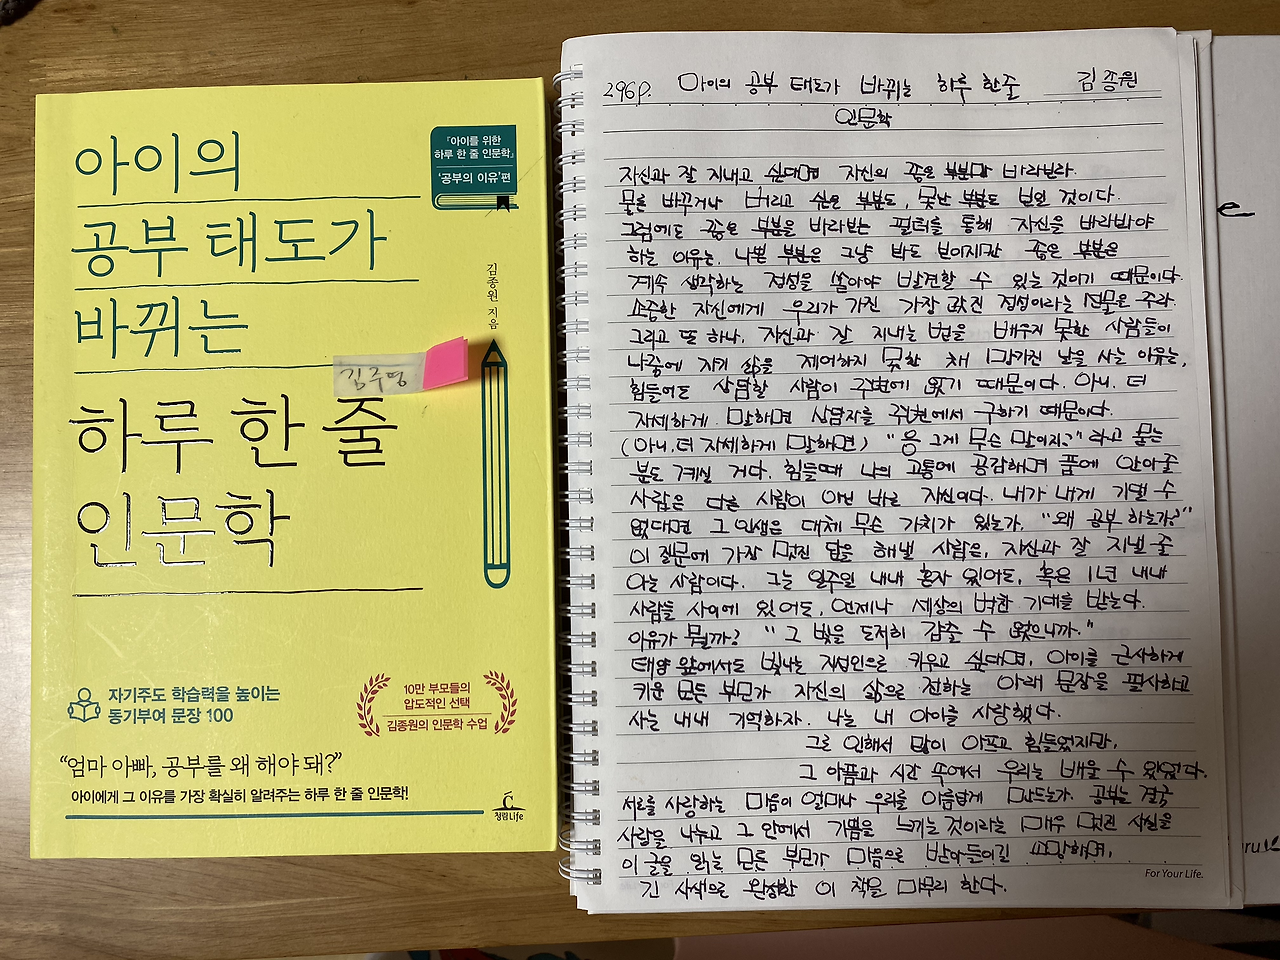 아이의
공부 태도가
바뀌는
하루 한 줄
인문학
『아이를 위한
하루 한 줄 인문학』
'공부의 이유'편
김종원 지음
김주영
자기주도 학습력을 높이는
동기부여 문장 100
10만 부모들의
압도적인 선택
김종원의 인문학 수업
“엄마 아빠, 공부를 왜 해야 돼?”
아이에게 그 이유를 가장 확실히 알려주는 하루 한 줄 인문학!
청림Life
296p. 아이의 공부 태도가 바뀌는 하루 한줄 김종원
인문학
자신과 잘 지내고 싶다면 자신의 좋은 부분만 바라보라.
물론 바꾸거나 버리고 싶은 부분도, 못난 부분도 보일 것이다.
그럼에도 좋은 부분을 바라보는 필터를 통해 자신을 바라봐야
하는 이유는, 나쁜 부분은 그냥 봐도 보이지만 좋은 부분은
계속 생각하는 정성을 쏟아야 발견할 수 있는 것이기 때문이다.
소중한 자신에게 우리가 가진 가장 값진 정성이라는 선물을 주라.
그리고 또 하나, 자신과 잘 지내는 법을 배우지 못한 사람들이
나중에 자기 삶을 제어하지 못한 채 망가진 날을 사는 이유는,
힘들어도 상담할 사람이 주변에 없기 때문이다. 아니, 더
자세하게 말하면 상담자를 주변에서 구하기 때문이다.
(아니, 더 자세하게 말하면) “응 그게 무슨 말이지?” 라고 묻는
분도 계실 거다. 힘들때 나의 고통에 공감해주며 품에 안아줄
사람은 다른 사람이 아닌 바로 자신이다. 내가 내게 기댈 수
없다면 그 인생은 대체 무슨 가치가 있는가. “왜 공부 하는가?”
이 질문에 가장 멋진 답을 해낼 사람은, 자신과 잘 지낼 줄
아는 사람이다. 그는 일주일 내내 혼자 있어도, 혹은 1년 내내
사람들 사이에 있어도, 언제나 세상의 벅찬 기대를 받는다.
이유가 뭘까? “그 빛을 도저히 감출 수 없으니까.”
태양 앞에서도 빛나는 지성인으로 키우고 싶다면, 아이를 근사하게
키운 모든 부모가 자신의 삶으로 전하는 아래 문장을 필사하고
사는 내내 기억하자. 나는 내 아이를 사랑했다.
그로 인해서 많이 아프고 힘들었지만,
그 아픔과 시간 속에서 우리는 배울 수 있었다.
서로를 사랑하는 마음이 얼마나 우리를 아름답게 만드는가. 공부는 결국
사랑을 나누고 그 안에서 기쁨을 느끼는 것이라는 매우 멋진 사실을
이 글을 읽는 모든 부모가 마음으로 받아들이길 소망하며,
긴 사색으로 완성한 이 책을 마무리 한다.
For Your Life.